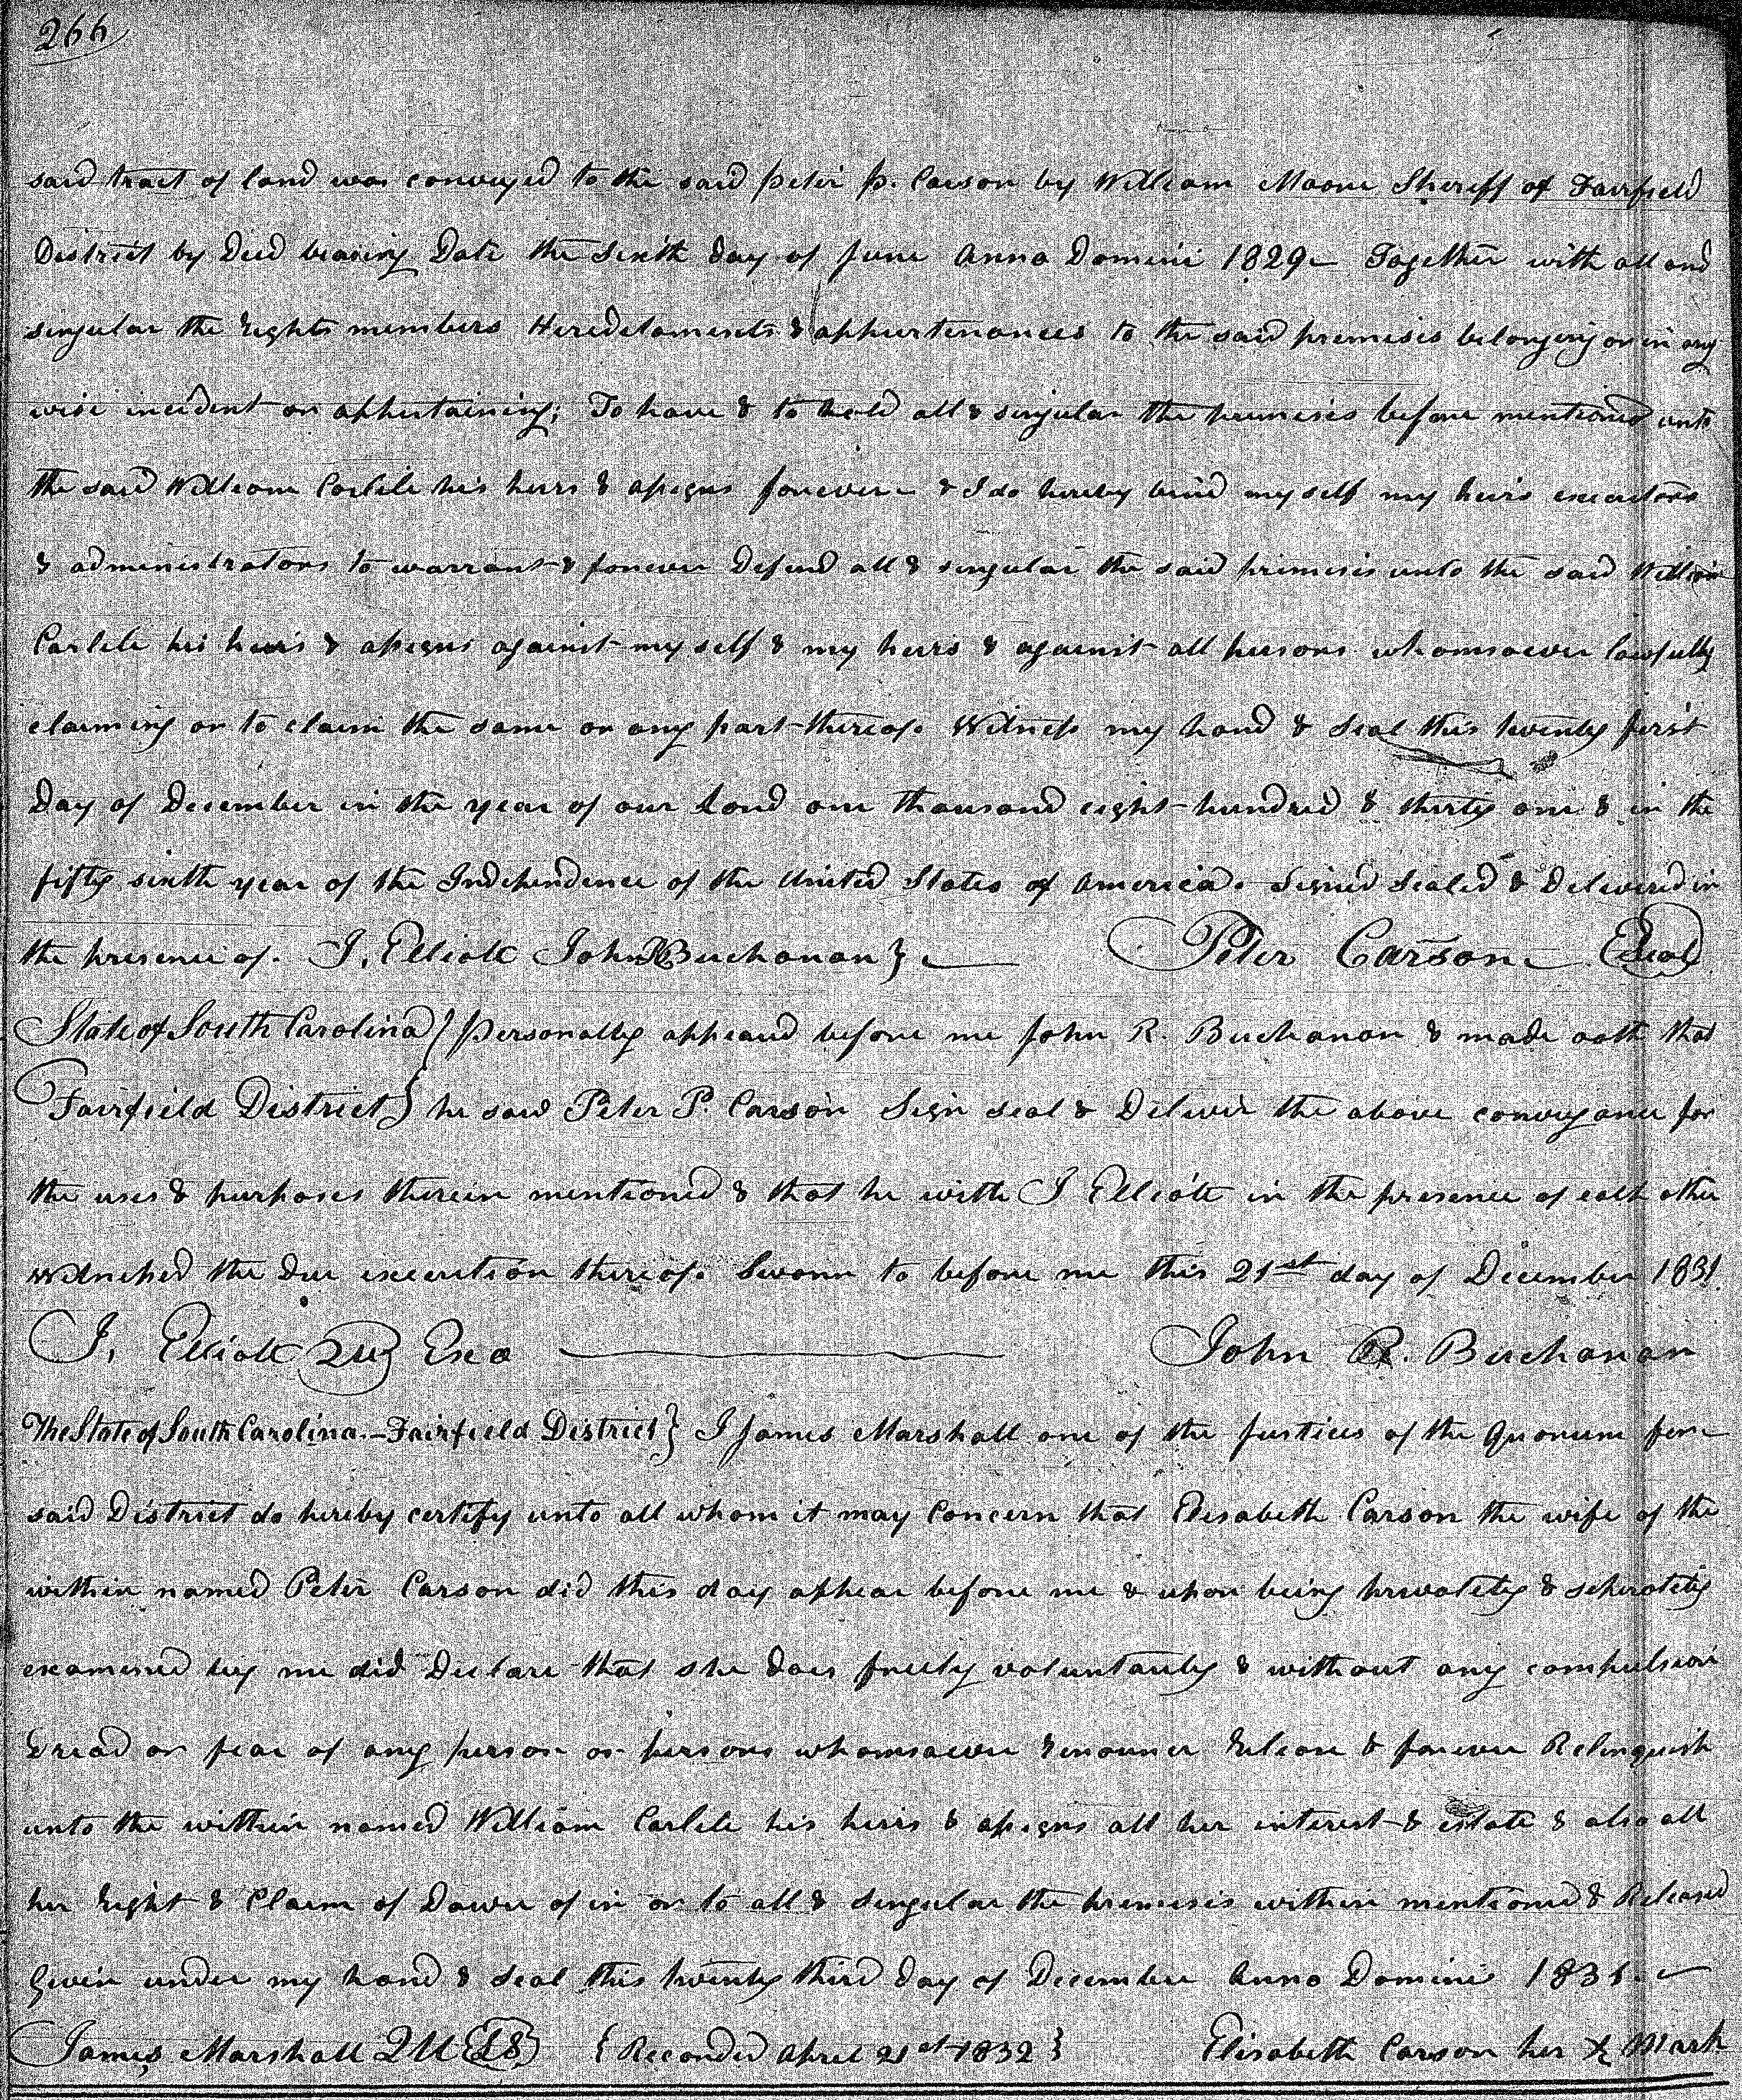 266
said tract of land was conveyed to the said Peter P. Carson by William Moore Sheriff of Fairfield
District by Deed bearing Date the Sixth day of June Anno Domini 1829 — Together with all and
singular the Rights members Hereditaments & appurtenances to the said premises belonging or in any
wise incident or appertaining; To have & to hold all & singular the premises before mentioned unto
the said William Carlile his heirs & assigns forever — & I do hereby bind my self my heirs executors
& administrators to warrant & forever Defend all & singular the said premises unto the said William
Carlile his heirs & assigns against my self & my heirs & against all persons whomsoever lawfully
claiming or to claim the same or any part thereof. Witness my hand & Seal this twenty first
Day of December in the year of our Lord one thousand eight hundred & thirty one & in the
fifty sixth year of the Independence of the United States of America. Signed Sealed & Delivered in
the presence of. J. Elliott John R Buchanan } — Peter Carson — Seal
State of South Carolina } Personally appeard before me John R. Buchanan & made oath that
Fairfield District } he saw Peter P. Carson Sign seal & Deliver the above conveyance for
the uses & purposes therein mentioned & that he with J Elliott in the presence of each other
Witnessed the Due execution thereof. Sworn to before me this 21st day of December 1831
J. Elliott QU Exo — John R. Buchanan
The State of South Carolina. — Fairfield District } I James Marshall one of the Justices of the Quorum for
said District do hereby certify unto all whom it may Concern that Elisabeth Carson the wife of the
within named Peter Carson did this day appear before me & upon being privately & seperately
examined by me did Declare that she does freely voluntarily & without any compulsion
Dread or fear of any person or persons whomsoever Renounce Release & forever Relinquish
unto the within named William Carlile his heirs & assigns all her interest & estate & also all
her Right & Claim of Dower of in or to all & singular the premises within mentioned & Released
Given under my hand & Seal this twenty third Day of December Anno Domini 1831. —
James Marshall QU LS { Recorded April 21st 1832 } Elisabeth Carson her X Mark